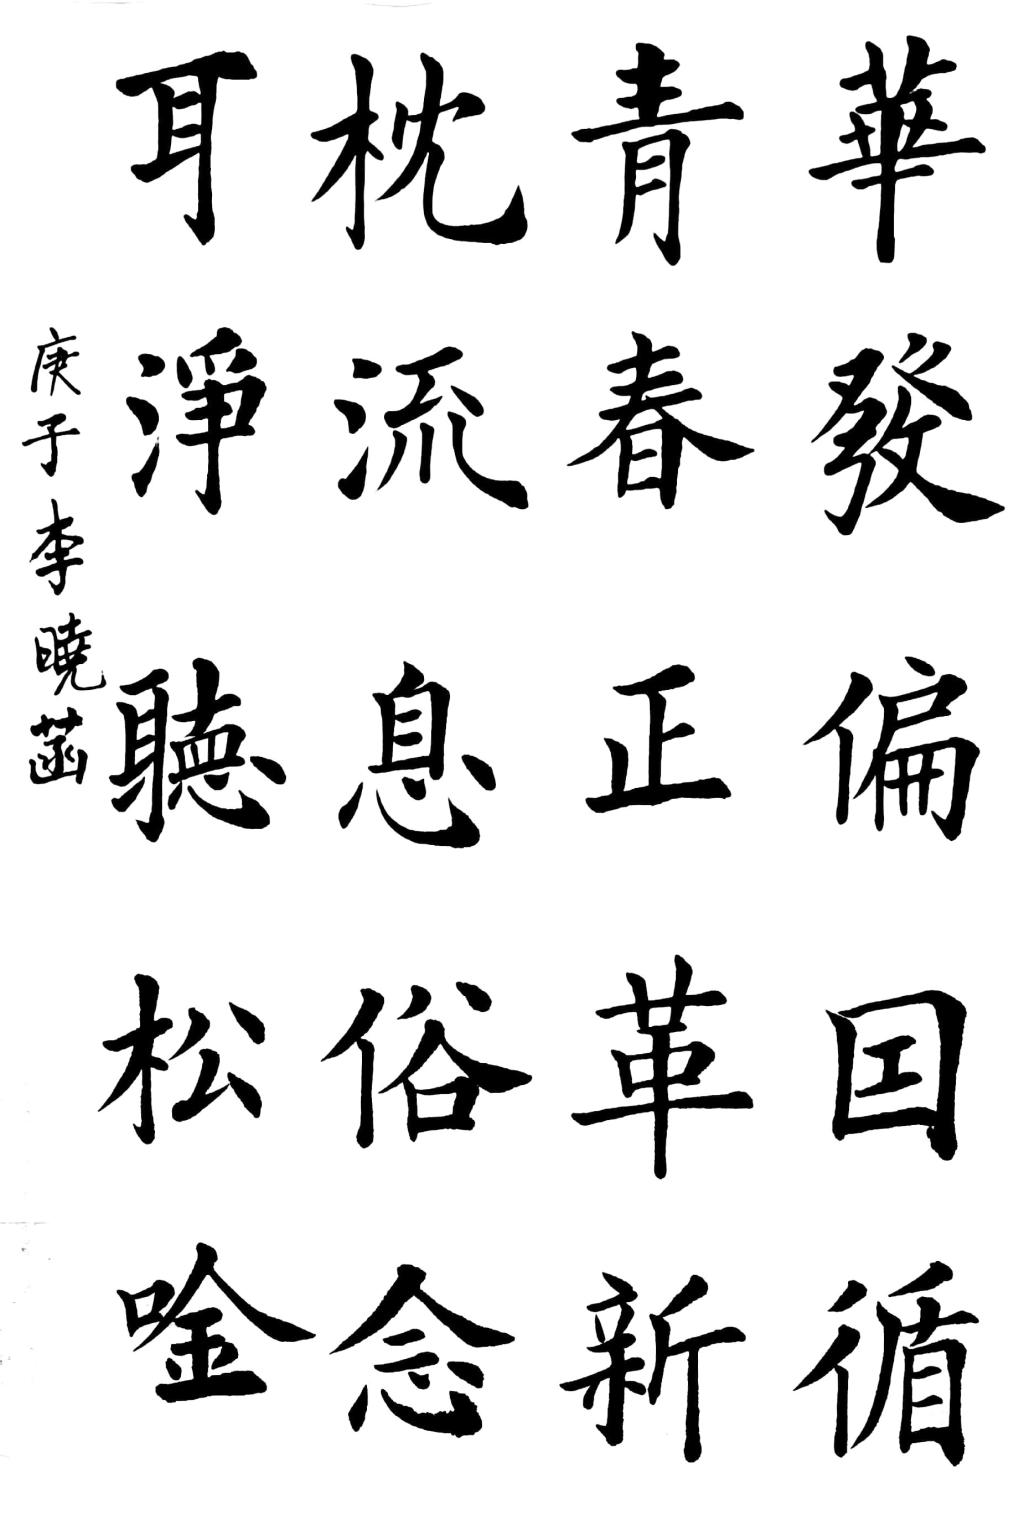 華發偏囙循
青春正革新
枕流息俗念
耳淨聽松唫
庚子李曉菡